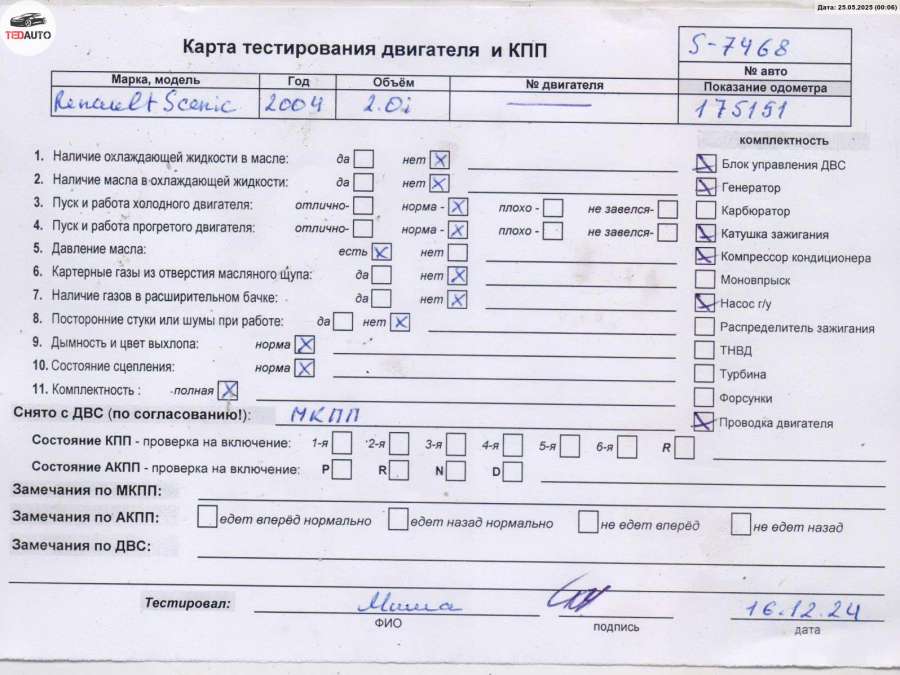 Дата: 25.05.2025 (00:06)
TEDAUTO
Карта тестирования двигателя и КПП
S-7468
№ авто
Марка, модель Год Объём № двигателя Показание одометра
Renault Scenic 2004 2.0i — 175151
комплектность
1. Наличие охлаждающей жидкости в масле: да нет X
Блок управления ДВС
2. Наличие масла в охлаждающей жидкости: да нет X
Генератор
3. Пуск и работа холодного двигателя: отлично- норма - X плохо - не завелся-
Карбюратор
4. Пуск и работа прогретого двигателя: отлично- норма - X плохо - не завелся-
Катушка зажигания
5. Давление масла: есть X нет
Компрессор кондиционера
6. Картерные газы из отверстия масляного щупа: да нет X
Моновпрыск
7. Наличие газов в расширительном бачке: да нет X
Насос г/у
8. Посторонние стуки или шумы при работе: да нет X
Распределитель зажигания
9. Дымность и цвет выхлопа: норма X
ТНВД
10. Состояние сцепления: норма X
Турбина
11. Комплектность : полная X
Форсунки
Снято с ДВС (по согласованию!): МКПП
Проводка двигателя
Состояние КПП - проверка на включение: 1-я 2-я 3-я 4-я 5-я 6-я R
Состояние АКПП - проверка на включение: P R N D
Замечания по МКПП:
Замечания по АКПП: едет вперёд нормально едет назад нормально не едет вперёд не едет назад
Замечания по ДВС:
Тестировал: Миша 16.12.24
ФИО подпись дата